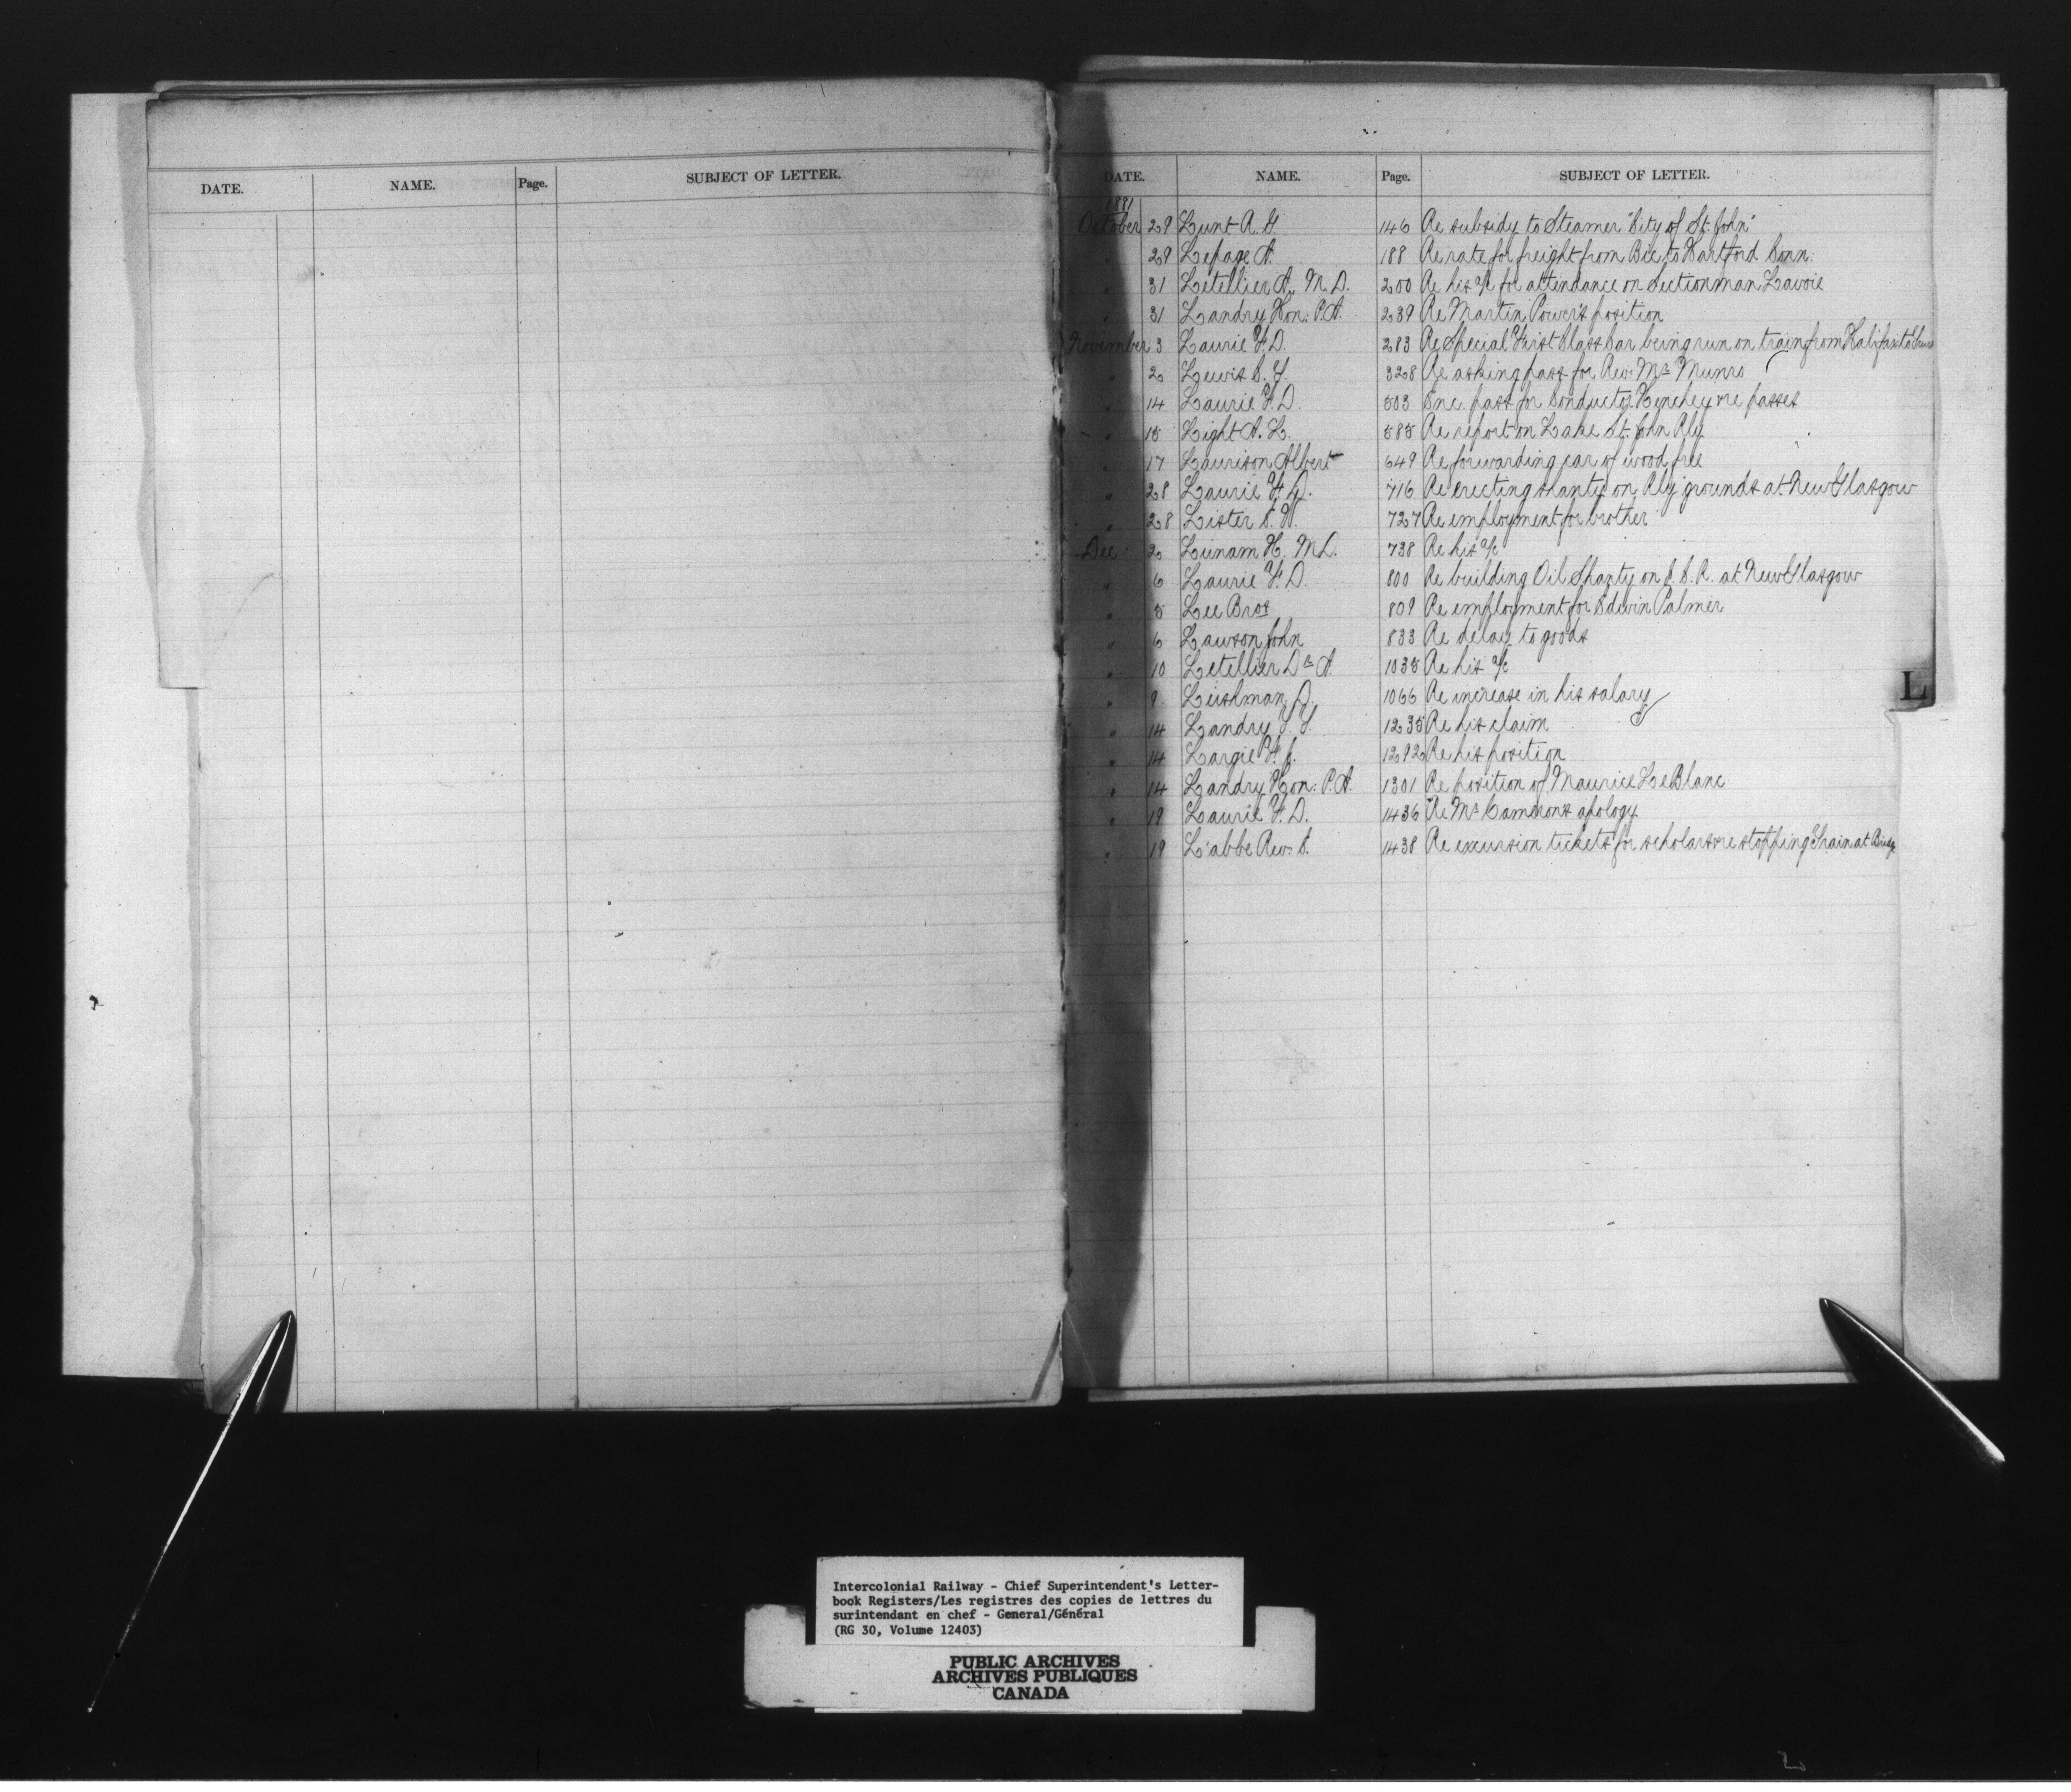 DATE. NAME. Page. SUBJECT OF LETTER.
DATE. NAME. Page. SUBJECT OF LETTER.
1881
October 29 Lunt R. G. 146 Re subsidy to Steamer "City of St. John"
" 29 Lepage A. 188 Re rate for freight from Bic to Hartford Conn:
" 31 Letellier A. M.D. 200 Re his a/c for attendance on Sectionman Lavoie
" 31 Landry Hon: P.A. 239 Re Martin Power's position
November 3 Laurie F. D. 283 Re Special First Class Car being run on train from Halifax to
" 2 Lewis 328 Re asking pass for Rev. Mr Munro
" 14 Laurie F. D. 503 Enc. pass for Conductor re passes
" 15 Light A. L. 585 Re report on Lake St. John Rly
" 17 Laurison Albert 649 Re forwarding car of wood free
" 28 Laurie F. D. 716 Re erecting shanty on Rly grounds at New Glasgow
" 28 Lister C. W. 727 Re employment for brother
Dec: 2 Lunam H. M.D. 738 Re his a/c
" 6 Laurie F. D. 800 Re building Oil Shanty on I. C. R. at New Glasgow
" 5 Lee Bros 809 Re employment for Edwin Palmer
" 6 Lawson John 833 Re delay to goods
" 10 Letellier Dr A. 1035 Re his a/c
" 9 Leishman D. 1066 Re increase in his salary
" 14 Landry 1235 Re his claim
" 14 Largie 1292 Re his position
" 14 Landry Hon: P.A. 1301 Re position of Maurice LeBlanc
" 19 Laurie F. D. 1436 Re Mr Cameron's apology
" 19 L'abbe Rev. 1438 Re excursion tickets for scholars re stopping Train at
L
Intercolonial Railway - Chief Superintendent's Letter-
book Registers/Les registres des copies de lettres du
surintendant en chef - General/Général
(RG 30, Volume 12403)
PUBLIC ARCHIVES
ARCHIVES PUBLIQUES
CANADA